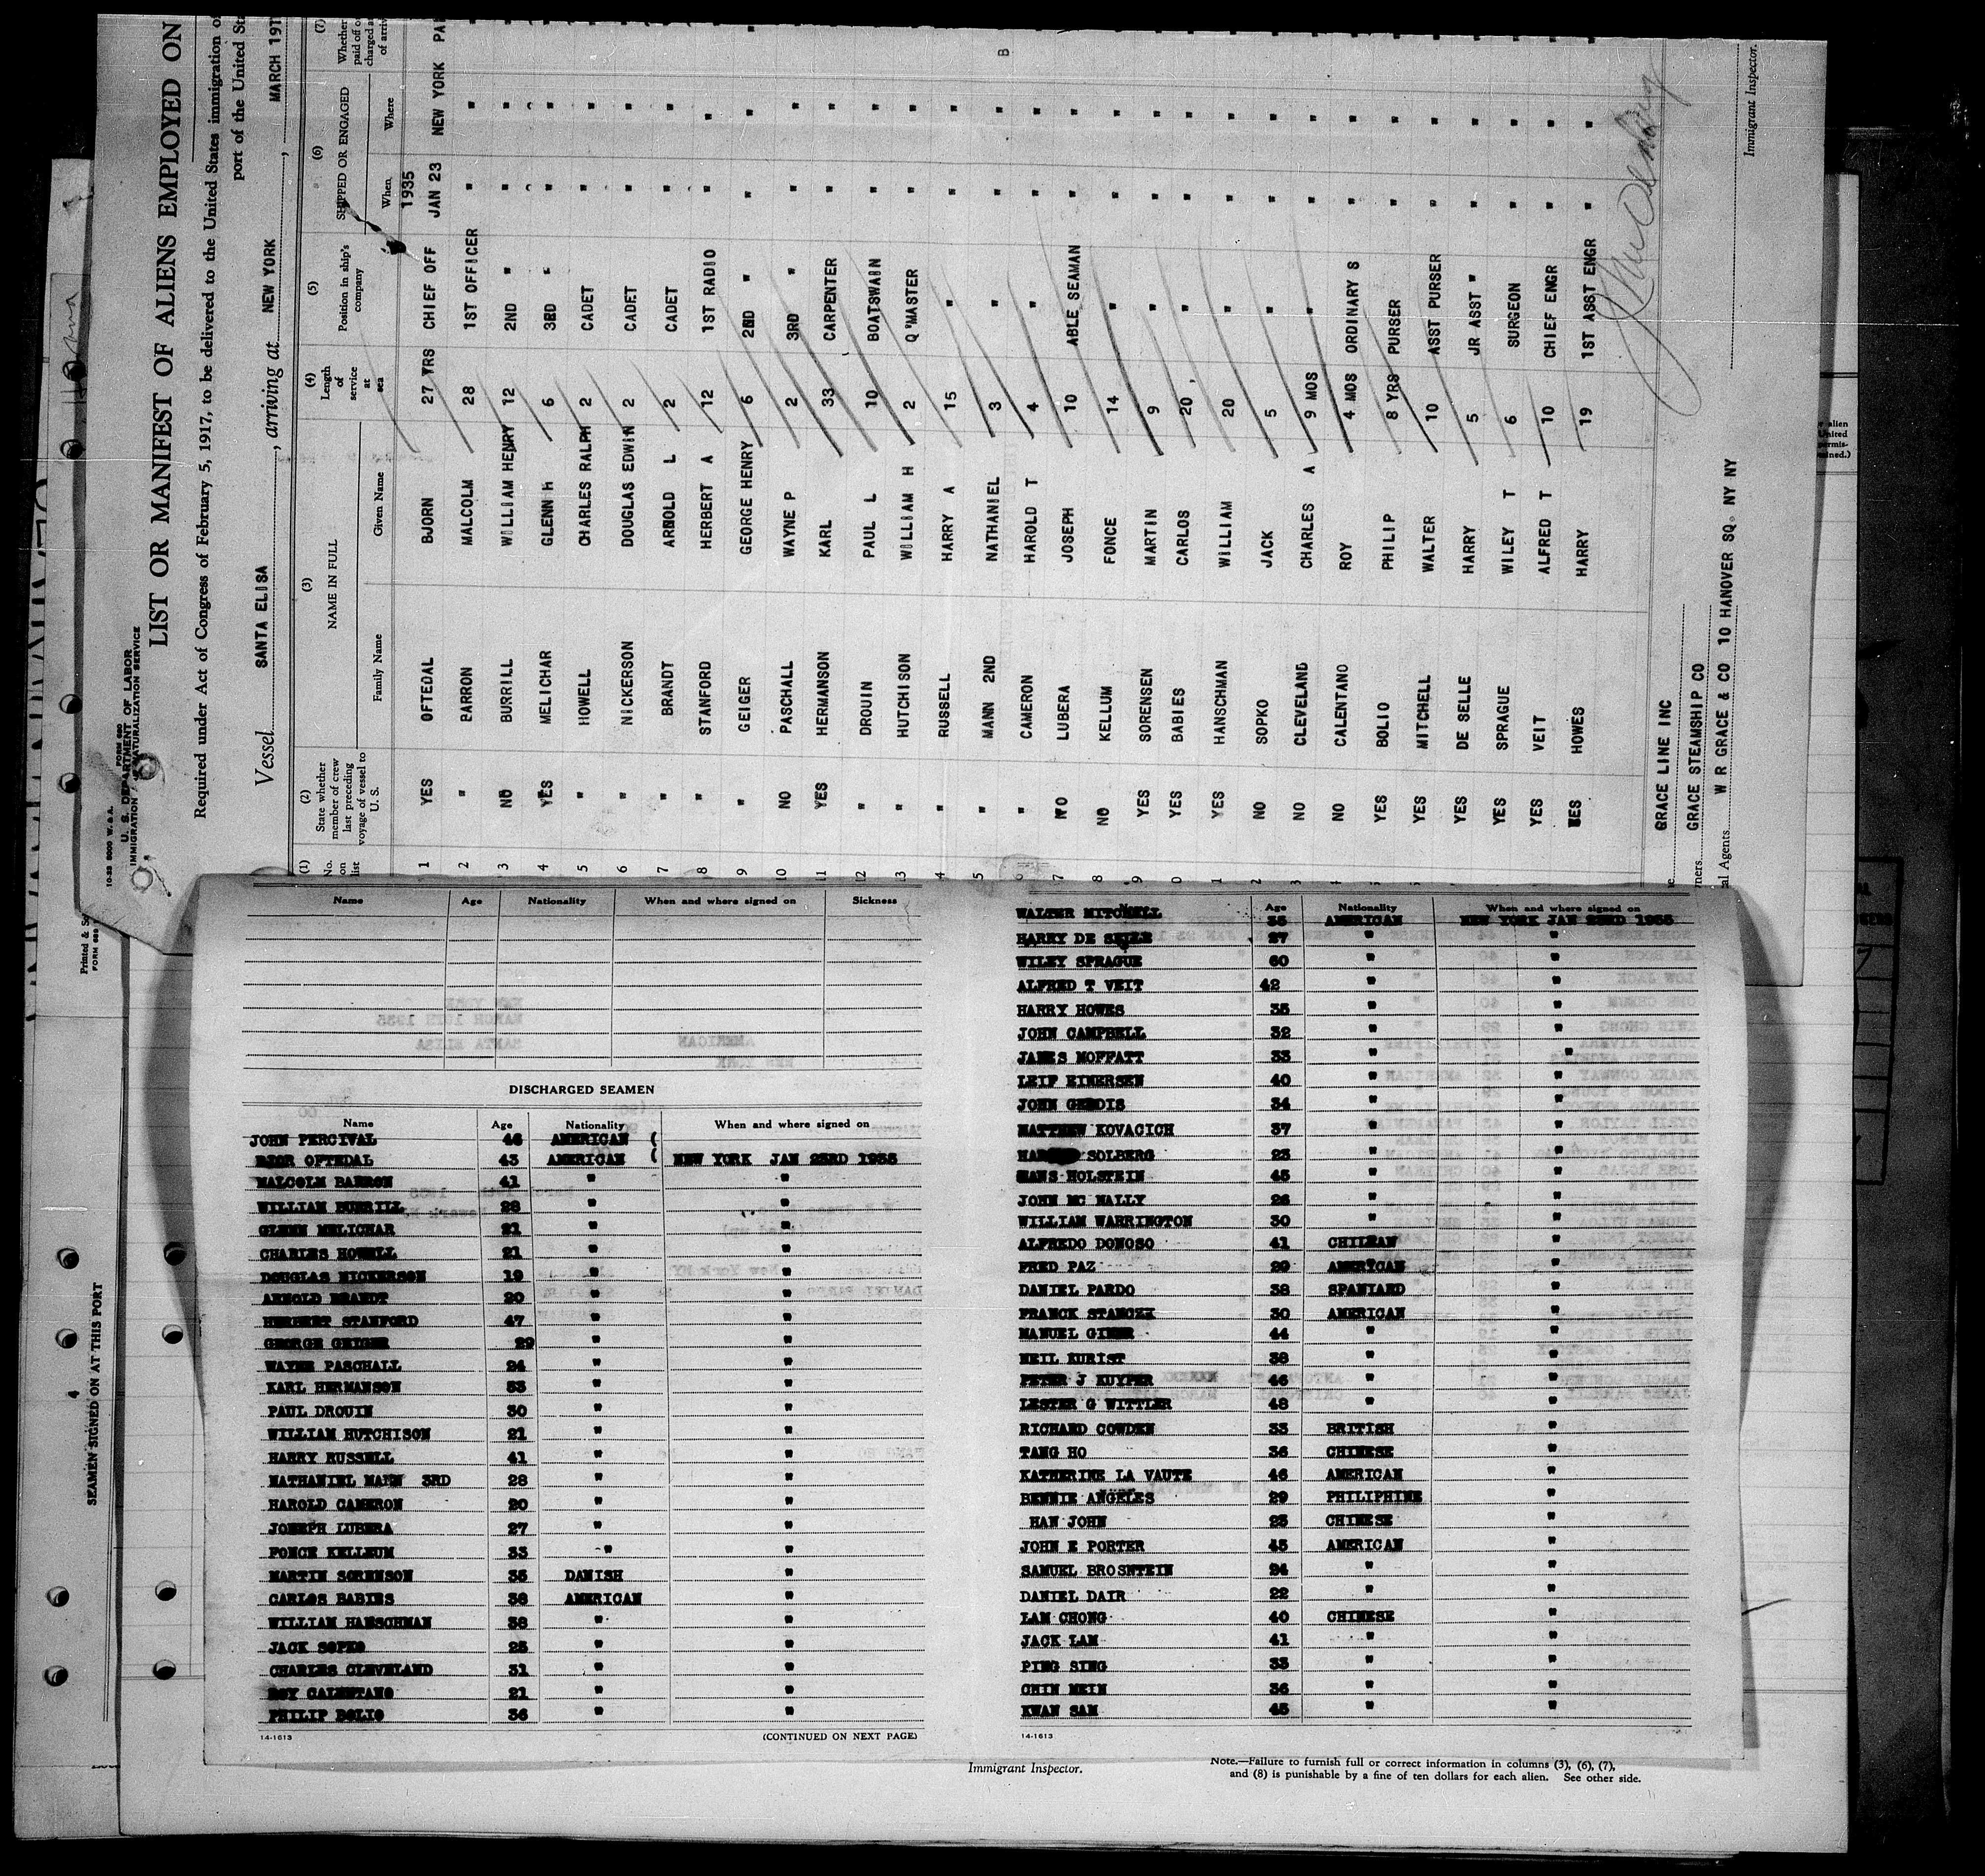 10-33 2000 W.&A.
FORM 680
U. S. DEPARTMENT OF LABOR
IMMIGRATION & NATURALIZATION SERVICE
LIST OR MANIFEST OF ALIENS EMPLOYED ON
Required under Act of Congress of February 5, 1917, to be delivered to the United States immigration
port of the United
Vessel SANTA ELISA, arriving at NEW YORK, MARCH 19T
(1) No. on list
(2) State whether member of crew last preceding voyage of vessel to U. S.
(3) NAME IN FULL
Family Name Given Name
(4) Length of service at sea
(5) Position in ship's company
(6) SHIPPED OR ENGAGED
When Where
(7) Whether paid off or charged at of arriv
1935
1 YES OFTEDAL BJORN 27 YRS CHIEF OFF JAN 23 NEW YORK PAI
2 " BARRON MALCOLM 28 1ST OFFICER " "
3 NO BURRILL WILLIAM HENRY 12 2ND " " "
4 YES MELICHAR GLENN H 6 3RD " " "
5 " HOWELL CHARLES RALPH 2 CADET " "
6 " NICKERSON DOUGLAS EDWIN 2 CADET " "
7 " BRANDT ARNOLD L 2 CADET " "
8 " STANFORD HERBERT A 12 1ST RADIO " "
9 " GEIGER GEORGE HENRY 6 2ND " " "
10 NO PASCHALL WAYNE P 2 3RD " " "
11 YES HERMANSON KARL 33 CARPENTER " "
12 " DROUIN PAUL L 10 BOATSWAIN " "
13 " HUTCHISON WILLIAM H 2 Q'MASTER " "
4 " RUSSELL HARRY A 15 " "
5 " MANN 2ND NATHANIEL 3 " " "
6 " CAMERON HAROLD T 4 " " "
7 NO LUBERA JOSEPH 10 ABLE SEAMAN " "
8 NO KELLUM FONCE 14 " " "
9 YES SORENSEN MARTIN 9 " " "
0 YES BABIES CARLOS 20 " " "
1 YES HANSCHMAN WILLIAM 20 " " "
2 NO SOPKO JACK 5 " " "
3 NO CLEVELAND CHARLES A 9 MOS " " "
4 NO CALENTANO ROY 4 MOS ORDINARY S " "
YES BOLIO PHILIP 8 YRS PURSER " "
YES MITCHELL WALTER 10 ASST PURSER " "
YES DE SELLE HARRY 5 JR ASST " " "
YES SPRAGUE WILEY T 6 SURGEON " "
YES VEIT ALFRED T 10 CHIEF ENGR " "
YES HOWES HARRY 19 1ST ASST ENGR " "
GRACE LINE INC
ners GRACE STEAMSHIP CO
al Agents W R GRACE & CO 10 HANOVER SQ. NY NY
Immigrant Inspector.
B
Printed & So
FORM 689
SEAMEN SIGNED ON AT THIS PORT
4
Name Age Nationality When and where signed on Sickness
DISCHARGED SEAMEN
Name Age Nationality When and where signed on
JOHN PERCIVAL 46 AMERICAN (
BJOR OFTEDAL 43 AMERICAN ( NEW YORK JAN 23RD 1935
MALCOLM BARRON 41 " "
WILLIAM BURRILL 28 " "
GLENN MELICHAR 21 " "
CHARLES HOWELL 21 " "
DOUGLAS NICKERSON 19 " "
ARNOLD BRANDT 20 " "
HERBERT STANFORD 47 " "
GEORGE GEIGER 29 " "
WAYNE PASCHALL 24 " "
KARL HERMANSON 53 " "
PAUL DROUIN 30 " "
WILLIAM HUTCHISON 21 " "
HARRY RUSSELL 41 " "
NATHANIEL MANN 3RD 28 " "
HAROLD CAMERON 20 " "
JOSEPH LUBERA 27 " "
FONCE KELLEUM 33 " "
MARTIN SORENSON 35 DANISH "
CARLOS BABIES 36 AMERICAN "
WILLIAM HANSCHMAN 38 " "
JACK SOPKO 25 " "
CHARLES CLEVELAND 31 " "
ROY CALENTANO 21 " "
PHILIP BOLIO 36 " "
14-1613 (CONTINUED ON NEXT PAGE)
Age Nationality When and where signed on
WALTER MITCHELL 35 AMERICAN NEW YORK JAN 23RD 1935
HARRY DE SELLE 27 " "
WILEY SPRAGUE 60 " "
ALFRED T VEIT 42 " "
HARRY HOWES 35 " "
JOHN CAMPBELL 32 " "
JAMES MOFFATT 33 " "
LEIF EINERSEN 40 " "
JOHN GERDIS 34 " "
MATTHEW KOVACICH 37 " "
SOLBERG 23 " "
HANS HOLSTEIN 45 " "
JOHN MC NALLY 26 " "
WILLIAM WARRINGTON 30 " "
ALFREDO DONOSO 41 CHILEAN "
FRED PAZ 29 AMERICAN "
DANIEL PARDO 38 SPANIARD "
FRANCK STANCZK 30 AMERICAN "
MANUEL GINER 44 " "
NEIL KURIST 38 " "
PETER J KUYPER 46 " "
LESTER G WITTLER 48 " "
RICHARD COWDEN 33 BRITISH "
TANG HO 36 CHINESE "
KATHERINE LA VAUTE 46 AMERICAN "
BENNIE ANGELES 29 PHILIPHINE "
HAN JOHN 23 CHINESE "
JOHN E PORTER 45 AMERICAN "
SAMUEL BROSNTEIN 24 " "
DANIEL DAIR 22 " "
LAM CHONG 40 CHINESE "
JACK LAM 41 " "
PING SING 33 " "
CHIN MEIN 36 " "
KWAN SAM 45 " "
14-1613
Immigrant Inspector.
Note.—Failure to furnish full or correct information in columns (3), (6), (7),
and (8) is punishable by a fine of ten dollars for each alien. See other side.